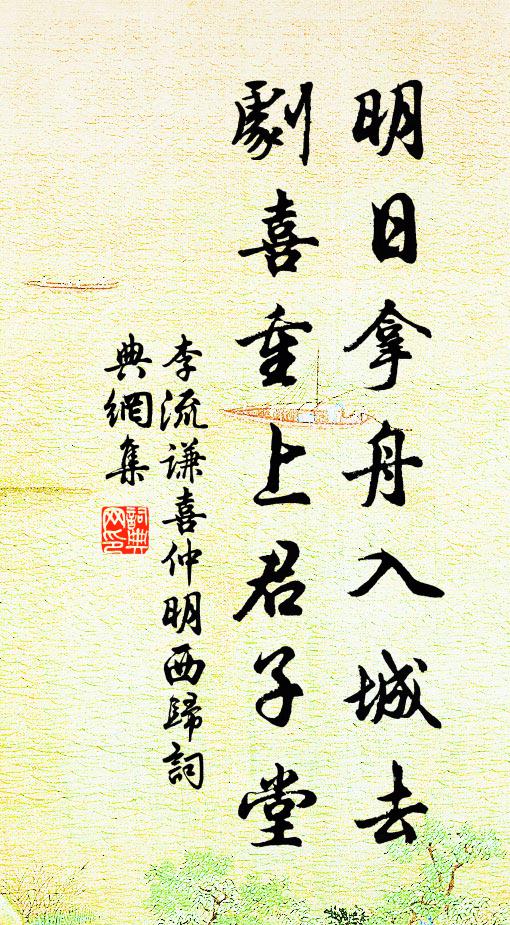 明日拿舟入城去
劇喜重上君子堂
李流謙喜仲明西歸詞
典網集
詞典网印